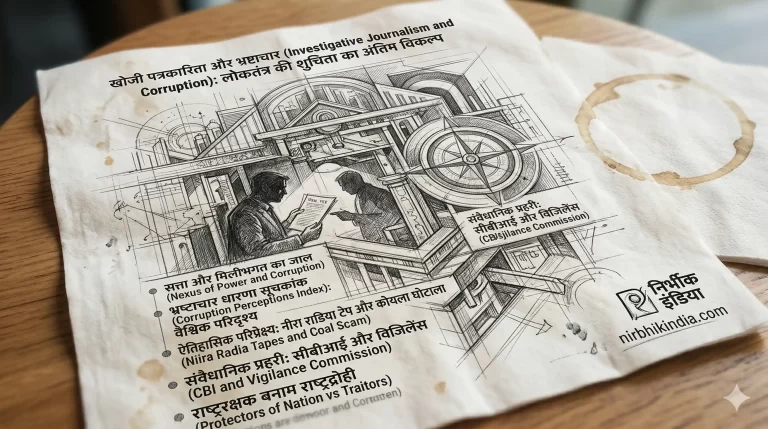 खोजी पत्रकारिता और भ्रष्टाचार (Investigative Journalism and
Corruption): लोकतंत्र की शुचिता का अंतिम विकल्प
संवैधानिक प्रहरी:
सीबीआई और विजिलेंस
(CBI/sjilance Commission)
सत्ता और मिलीभगत का जाल
(Nexus of Power and Corruption)
भ्रष्टाचार धारणा सूचकोक
(Corruption Perceptions Index):
वैश्विक परिदृश्य
ऐतिहासिक परिप्रेक्ष्य: नीरा राडिया टेप और कोयला घोटाला
(Niira Radia Tapes and Coal Scam)
संवैधानिक प्रहरी: सीबीआई और विजिलेंस
(CBI and Vigilance Commission)
राष्ट्ररक्षक बनाम राष्ट्रद्रोही
(Protectors of Nation vs Traitors)
निर्भीक
इंडिया
nirbhikindia.com